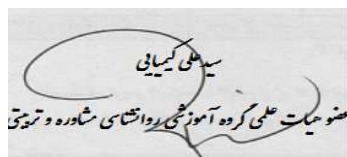 سید علی کیمیایی
عضو هیات علمی گروه آموزشی روانشناسی مشاوره و تربیتی